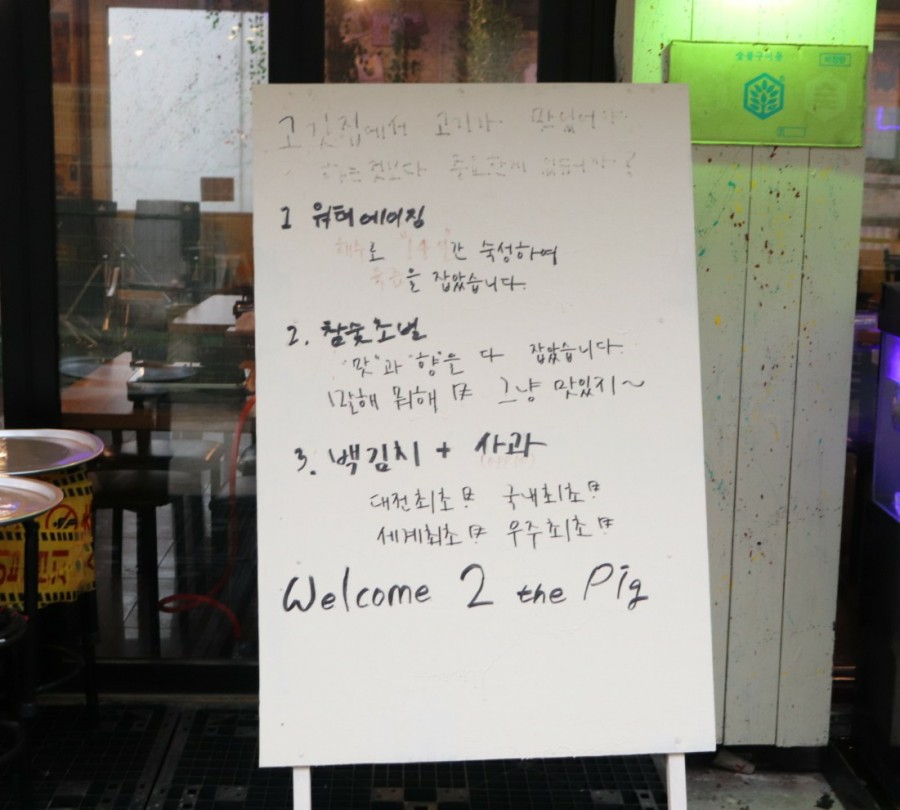 숯불구이용
고깃집에서 고기가 맛있어야
하는것보다 중요한게 있을까요?
1 워터에이징
해수로 "14일"간 숙성하여
육즙을 잡았습니다.
2. 참숯초벌
"맛"과 "향"은 다 잡았습니다.
말해 뭐해 그냥 맛있지~
3. 백김치 + 사과
대전최초 국내최초
세계최초 우주최초
Welcome 2 the Pig